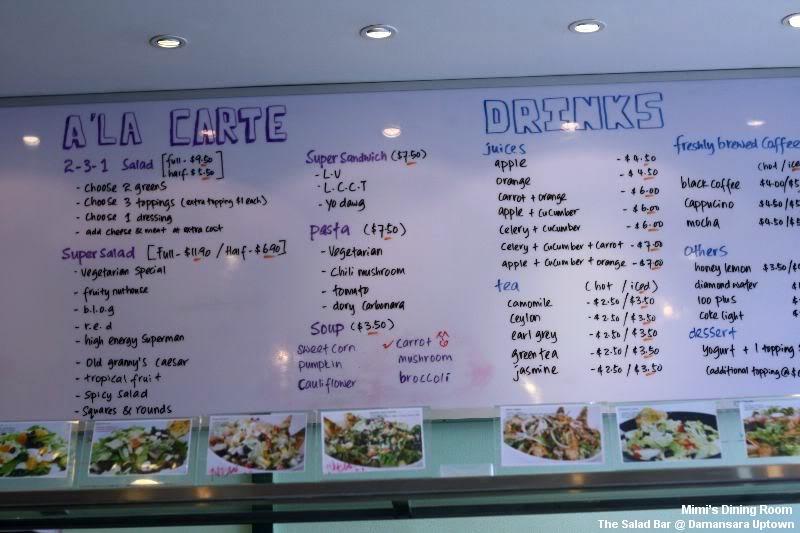 A'LA CARTE
2-3-1 Salad [full - $9.50
half - $5.50]
- Choose 2 greens
- Choose 3 toppings (extra topping $1 each)
- Choose 1 dressing
- add cheese & meat at extra cost
Super Salad [Full - $11.90 / Half - $6.90]
- Vegetarian Special
- fruity nuthouse
- b.l.o.g
- r.e.d
- high energy superman
- Old granny's caesar
- tropical fruit
- Spicy Salad
- Squares & rounds
Super Sandwich ($7.50)
- L.V
- L.C.C.T
- yo dawg
Pasta ($7.50)
- Vegetarian
- Chili mushroom
- tomato
- dory carbonara
Soup ($3.50)
sweet corn
pumpkin
Cauliflower
✓ carrot ^^
mushroom
broccoli
DRINKS
juices
apple - $4.50
orange - $4.50
carrot + orange - $6.00
apple + cucumber - $6.00
celery + cucumber - $6.00
celery + cucumber + carrot - $7.00
apple + cucumber + orange - $7.00
tea (hot / iced)
camomile - $2.50 / $3.50
Ceylon - $2.50 / $3.50
earl grey - $2.50 / $3.50
green tea - $2.50 / $3.50
jasmine - $2.50 / $3.50
freshly brewed coffee
(hot / ice
black coffee $4.00/$5
Cappucino $4.50/$5
mocha $4.50/$5
others
honey lemon $3.50/$
diamond water $
100 plus $
coke light $
dessert
Yogurt + 1 topping
(additional topping @ $
Mimi's Dining Room
The Salad Bar @ Damansara Uptown